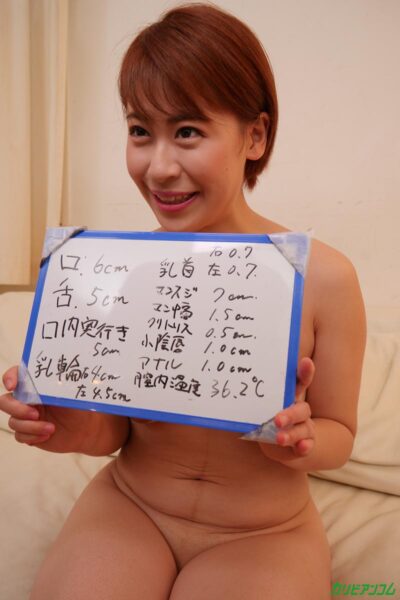 口: 6cm
舌. 5cm
口内奥行き
5cm
乳輪 右4cm
左4.5cm
乳首 右0.7
左0.7.
マンスジ 7cm.
マン幅 1.5cm
クリトリス 0.5cm.
小陰唇 1.0cm
アナル 1.0cm
膣内温度 36.2℃
カリビアンコム